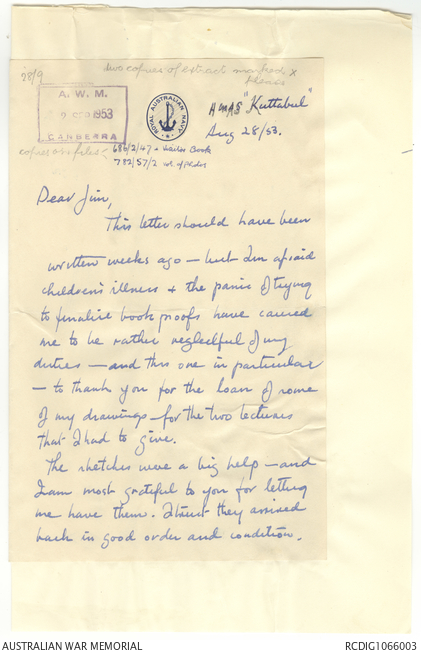 28/9
two copies of extract marked x
please
A. W. M.
1953
CANBERRA
ROYAL AUSTRALIAN NAVY
HMAS "Kuttabul"
Aug 28/53.
copies on files
686/2/47
Visitor Book
782/57/2
Dear Jim,
This letter should have been
written weeks ago – but I'm afraid
children's illness + the panic of trying
to finalise book proofs have caused
me to be rather neglectful of my
duties – and this one in particular
– to thank you for the loan of some
of my drawings – for the two lectures
that I had to give.
The sketches were a big help – and
I am most grateful to you for letting
me have them. I trust they arrived
back in good order and condition.
AUSTRALIAN WAR MEMORIAL
RCDIG1066003